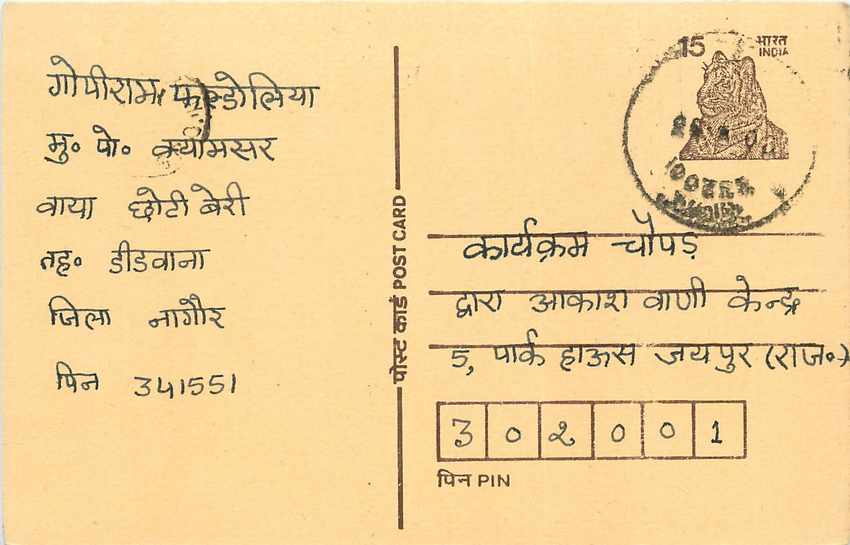 गोपीराम फान्डोलिया
मु० पो० क्यामसर
वाया छोटी बेरी
तह० डीडवाना
जिला नागौर
पिन 341551
पोस्ट कार्ड POST CARD
15 भारत
INDIA
कार्यक्रम चौपड़
द्वारा आकाश वाणी केन्द्र
5, पार्क हाऊस जयपुर (राज०)
302001
पिन PIN